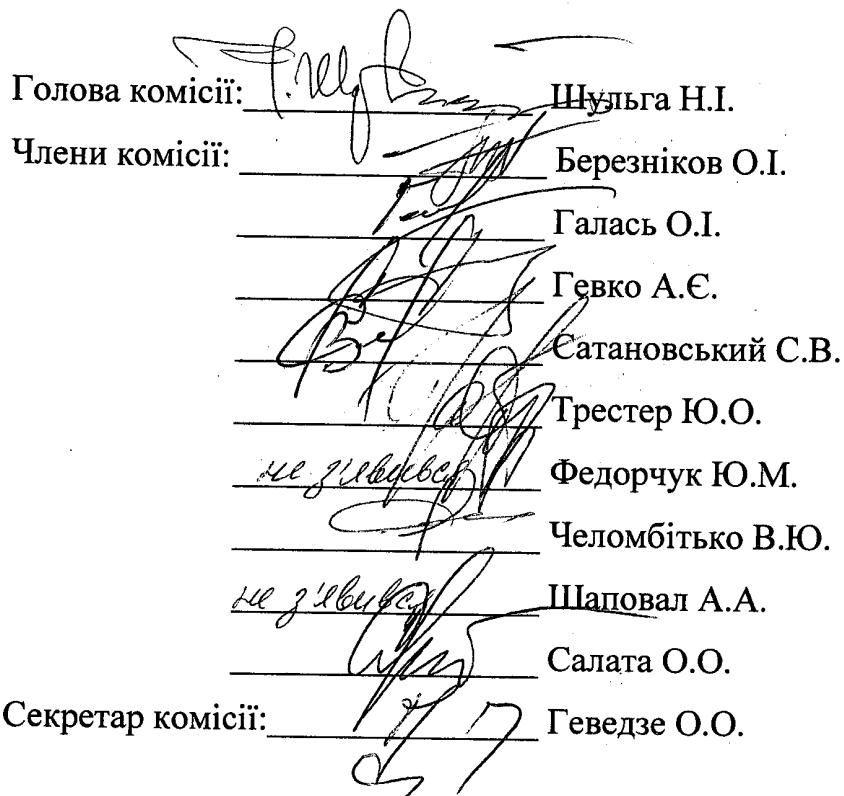 Голова комісії: Шульга Н.І.
Члени комісії: Березніков О.І.
Галась О.І.
Гевко А.Є.
Сатановський С.В.
Трестер Ю.О.
не з'явився Федорчук Ю.М.
Челомбітько В.Ю.
не з'явився Шаповал А.А.
Салата О.О.
Секретар комісії: Геведзе О.О.